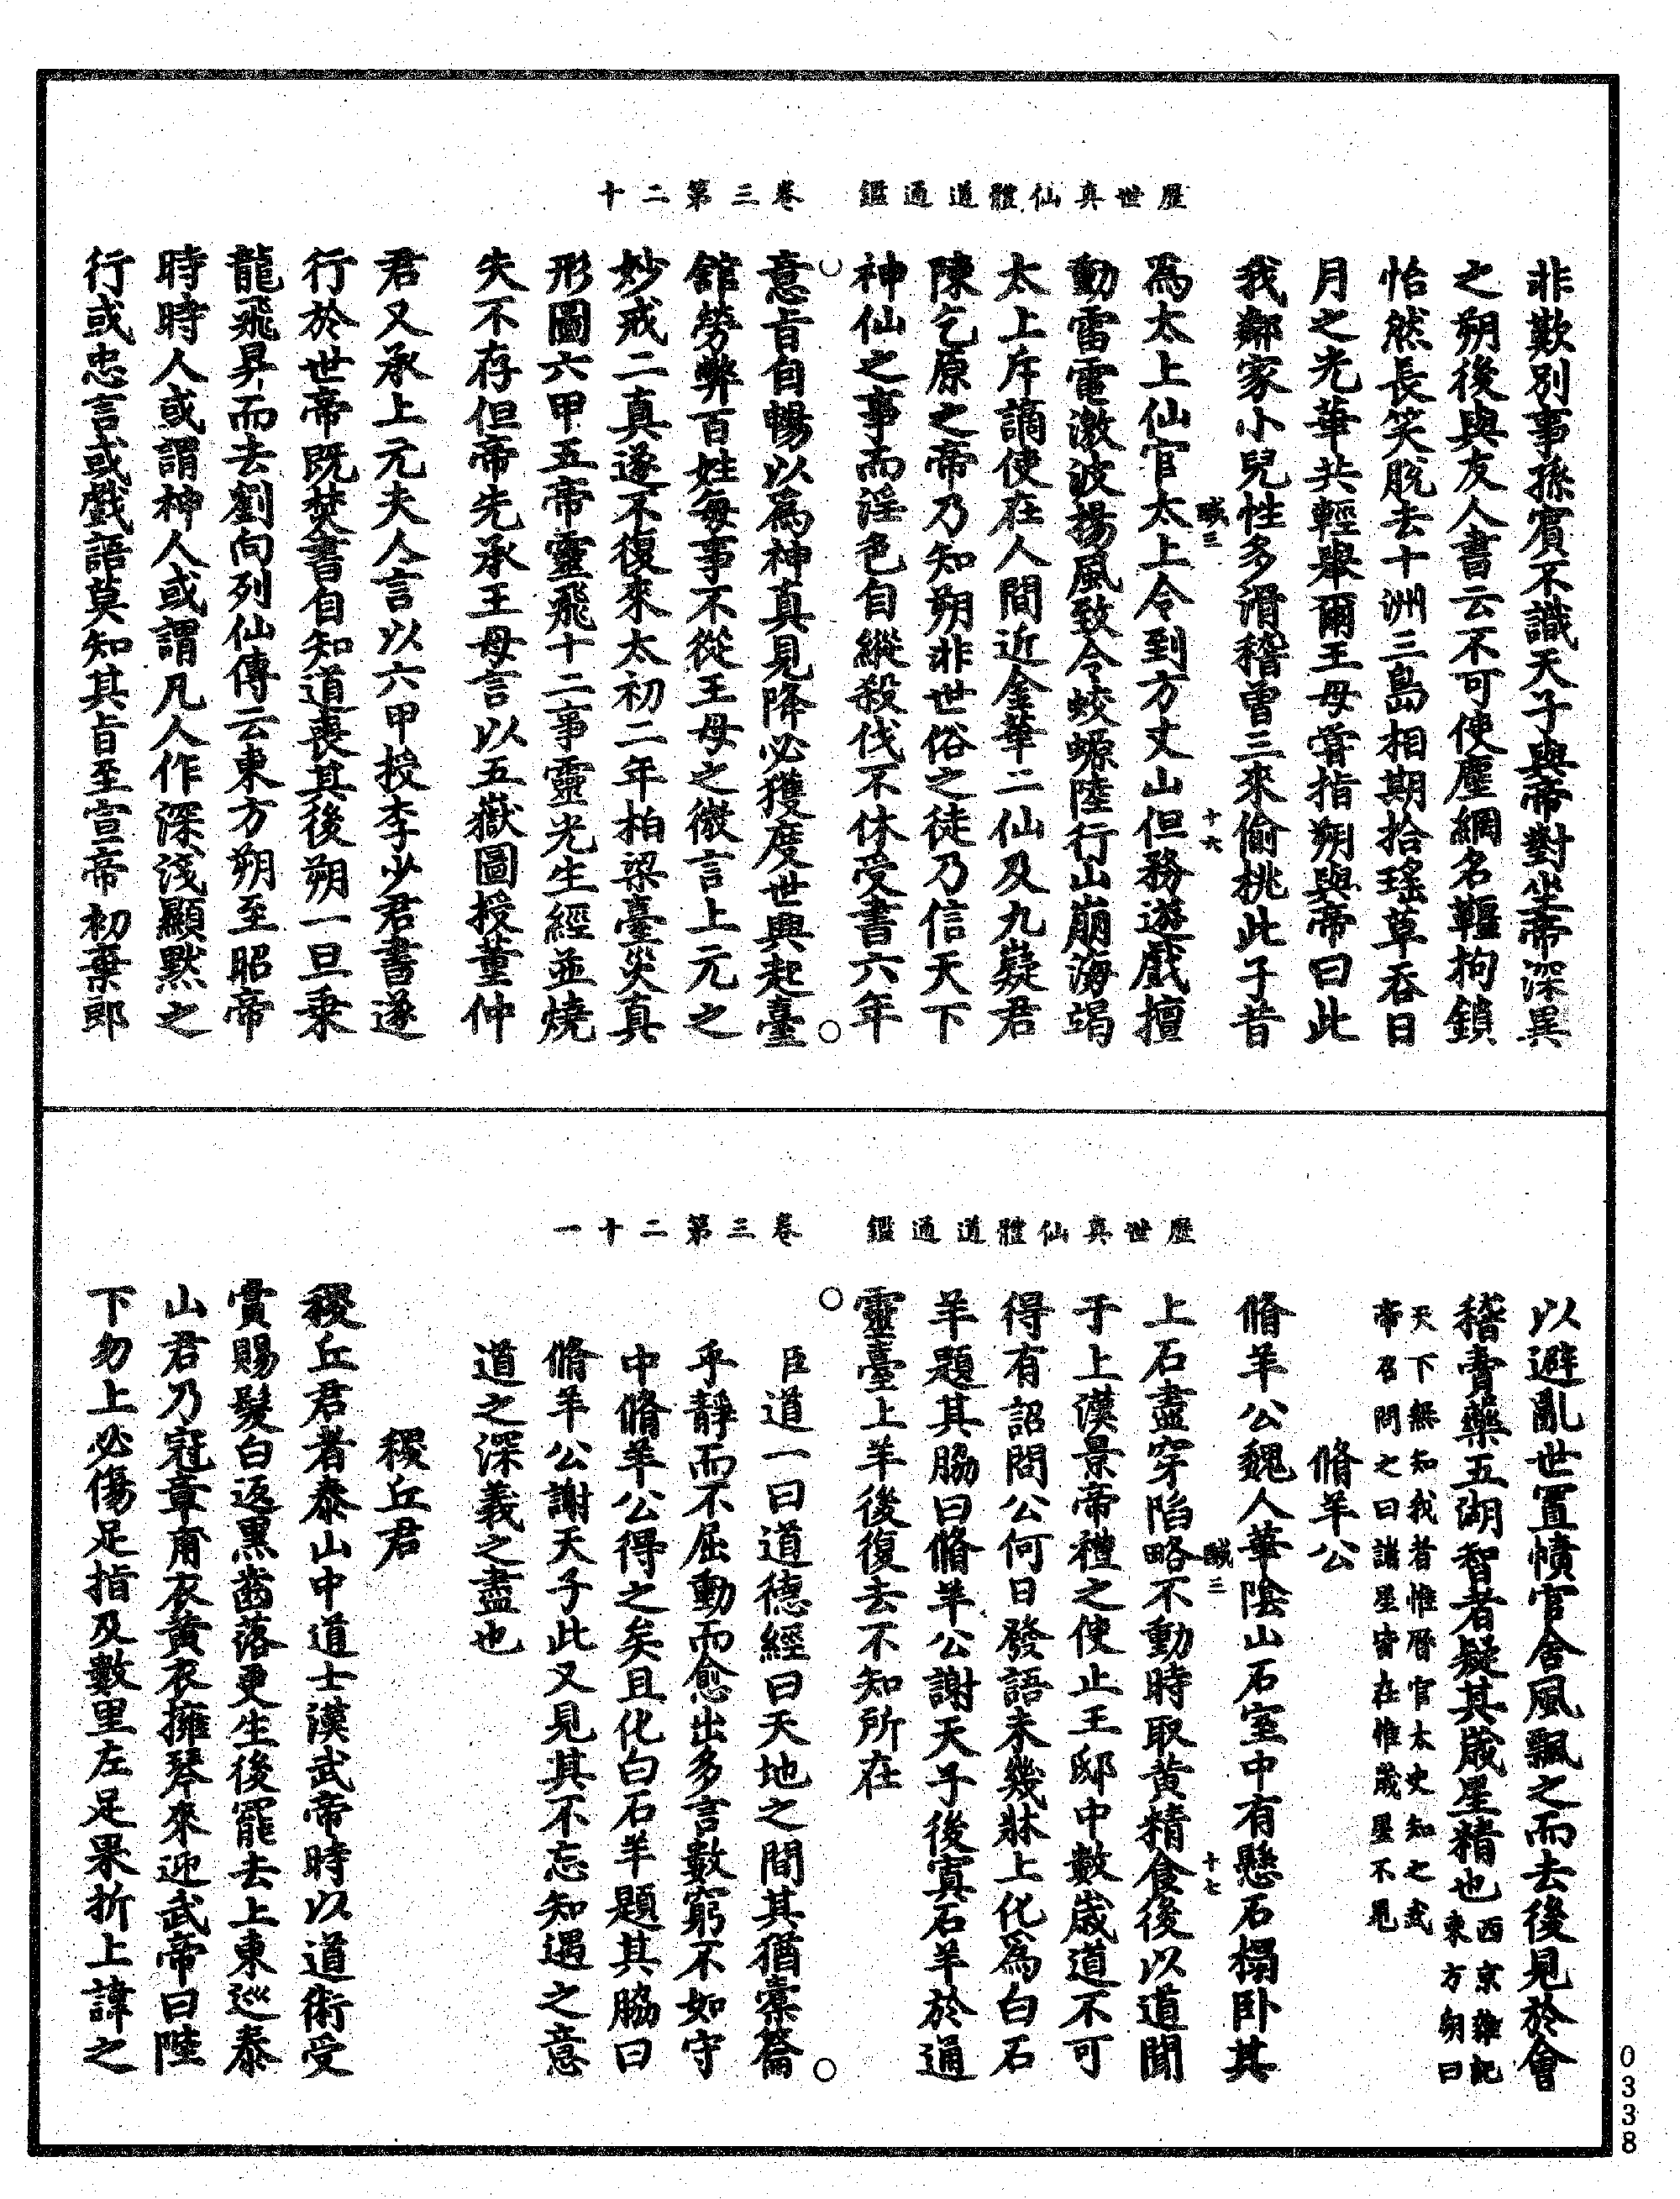 歷世真仙體道通鑑　卷三第二十
非歎別事孫賓不識天子與帝對坐帝深異
之朔後與友人書云不可使塵網名韁拘鎖
怡然長笑脫去十洲三島相期拾瑤草吞日
月之光華共輕舉爾王母嘗指朔與帝曰此
我鄰家小兒性多滑稽曾三來偷桃此子昔
醎三　十六
爲太上仙官太上令到方丈山但務遊戲擅
動雷電激波揚風致令蛟螈陸行山崩海竭
太上斥謫使在人間近金華二仙及九嶷君
陳乞原之帝乃知朔非世俗之徒乃信天下
神仙之事而淫色自縱殺伐不休受書六年
意旨自暢以爲神真見降必獲度世興起臺
舘勞弊百姓每事不從王母之微言上元之
妙戒二真遂不復來太初二年柏梁臺災真
形圖六甲五帝靈飛十二事靈光生經並燒
失不存但帝先承王母言以五嶽圖授董仲
君又承上元夫人言以六甲授李少君書遂
行於世帝既焚書自知道喪其後朔一旦乗
龍飛昇而去劉向列仙傳云東方朔至昭帝
時時人或謂神人或謂凡人作深淺顯默之
行或忠言或戲語莫知其旨至宣帝初棄郎
歷世真仙體道通鑑　卷三第二十一
以避亂世置幘官舍風飄之而去後見於會
稽賣藥五湖智者疑其歲星精也西京雜記東方朔曰
天下無知我者惟曆官太史知之武
帝召問之曰諸星皆在惟歲星不見
脩羊公
脩羊公魏人華陰山石室中有懸石榻卧其
醎三　十七
上石盡穿陷略不動時取黄精食後以道聞
于上漢景帝禮之使止王邸中數歲道不可
得有詔問公何日發語未幾牀上化爲白石
羊題其脇曰脩羊公謝天子後寘石羊於通
靈臺上羊後復去不知所在
臣道一曰道德經曰天地之間其猶橐籥
乎靜而不屈動而愈出多言數窮不如守
中脩羊公得之矣且化白石羊題其脇曰
脩羊公謝天子此又見其不忘知遇之意
道之深義之盡也
稷丘君
稷丘君者泰山中道士漢武帝時以道術受
賞賜髮白返黒齒落更生後罷去上東巡泰
山君乃冠章甫衣黄衣擁琴來迎武帝曰陛
下勿上必傷足指及數里左足果折上諱之
0338